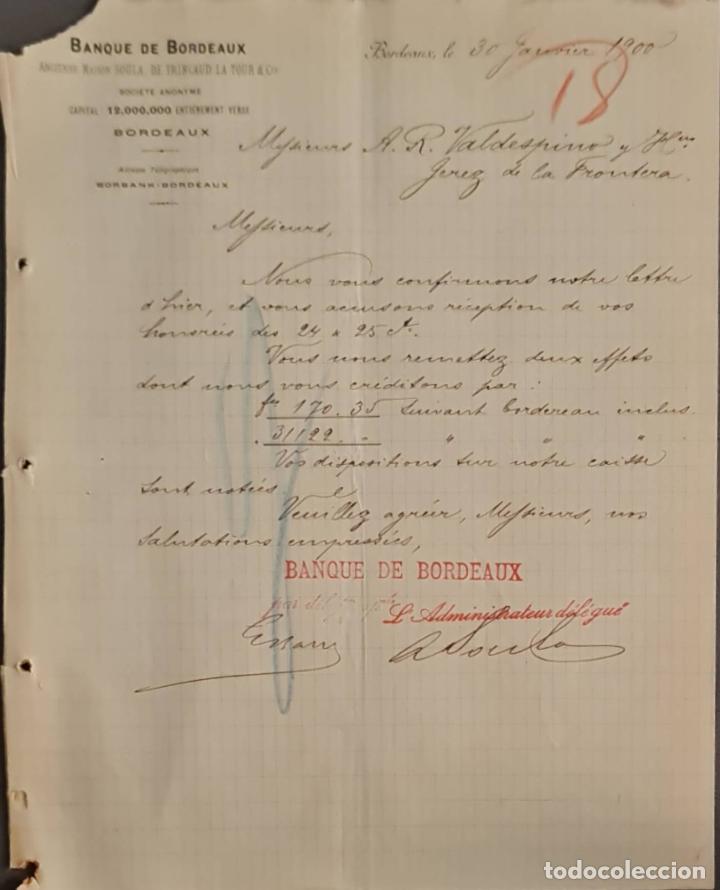 BANQUE DE BORDEAUX
ANCIENNE MAISON SOULA, DE TRINCAUD LA TOUR & Cie
SOCIÉTÉ ANONYME
CAPITAL : 12,000,000 ENTIÈREMENT VERSÉ
BORDEAUX
Adresse Télégraphique
BORBANK-BORDEAUX
Bordeaux, le 30 Janvier 1900
18
Messieurs A. R. Valdespino y Hno
Jerez de la Frontera.
Messieurs,
Nous vous confirmons notre lettre
d'hier, et vous accusons réception de vos
honorées des 24 & 25 ct.
Vous nous remettez deux effets
dont nous vous créditons par :
fcs 170.35 suivant bordereau inclus.
. 31122. " " " "
Vos dispositions sur notre caisse
sont notées.
Veuillez agréer, Messieurs, nos
salutations empressées,
BANQUE DE BORDEAUX
L'Administrateur délégué
todocoleccion.net